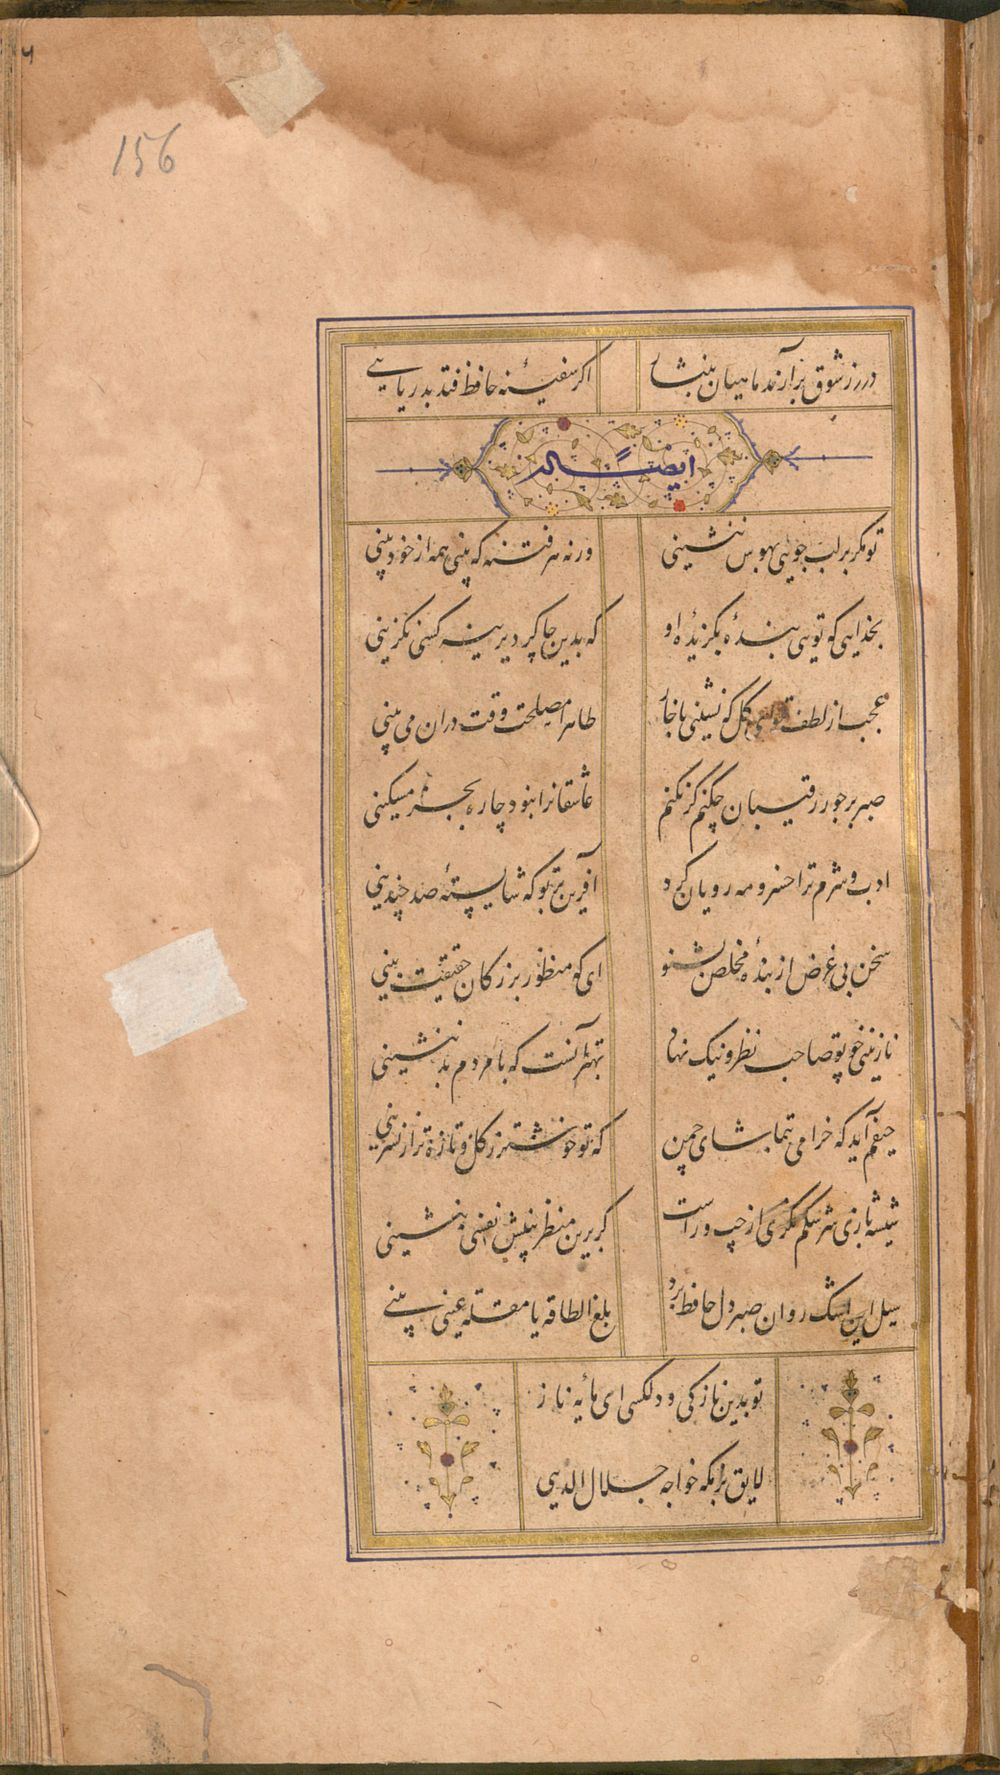 156
درر ز شوق برآرند ماهیان بنثار
اگر سفینه حافظ فتد بدریایی
ایضاً له
تو مگر بر لب جویی بهوس ننشینی
ورنه هر فتنه که بینی همه از خود بینی
بخدایی که تویی بندهٔ بگزیدهٔ او
که بدین چاکر دیرینه کسی نگزینی
عجب از لطف تو ای گل که نشینی با خار
ظاهرا مصلحت وقت در آن می بینی
صبر بر جور رقیبان چکنم گر نکنم
عاشقانرا نبود چاره بجز مسکینی
ادب و شرم ترا خسرو مه رویان کرد
آفرین بر تو که شایستهٔ صد چندینی
سخن بی غرض از بندهٔ مخلص بشنو
ای که منظور بزرگان حقیقت بینی
نازنینی چو تو صاحب نظر و نیک نهاد
بهتر آنست که با مردم بد ننشینی
حیفم آید که خرامی بتماشای چمن
که تو خوشتر ز گل و تازه تر از نسرینی
شیشه بازی سرشکم نگری از چپ و راست
گر برین منظر بینش نفسی بنشینی
سیل این اشک روان صبر دل حافظ برد
بلغ الطاقه یا مقله عینی بینی
تو بدین نازکی و دلکشی ای مایه ناز
لایق بزمگه خواجه جلال الدینی